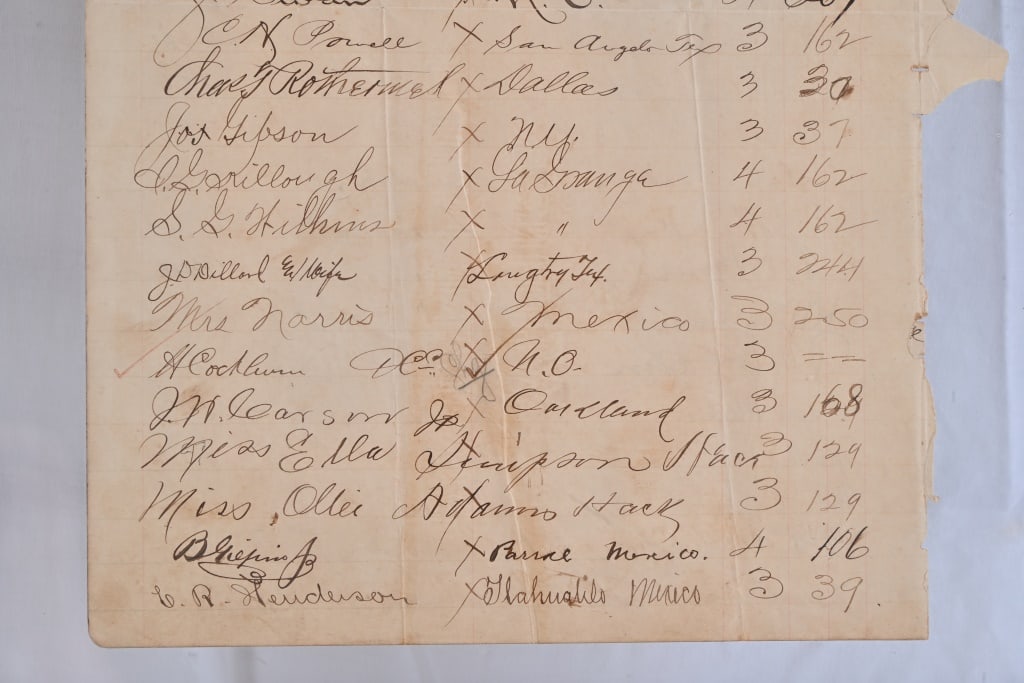 C. N. Powell × San Angelo Tex 3 162
Chas F Rothermel × Dallas 3 30
Jos Gibson × N.Y. 3 37
Killough × La Grange 4 162
S. G. Wilkins × " 4 162
J D Dillard & Wife × Langtry Tex. 3 244
Mrs Norris × Mexico 3 250
H Cockburn × N.O. 3 ==
J. W. Carson Jr × Oakland 3 168
Miss Ella Simpson Hack 3 129
Miss Ollie Adams Hack 3 129
× Parral Mexico. 4 106
C. R. Henderson × Tlahualilo Mexico 3 39.